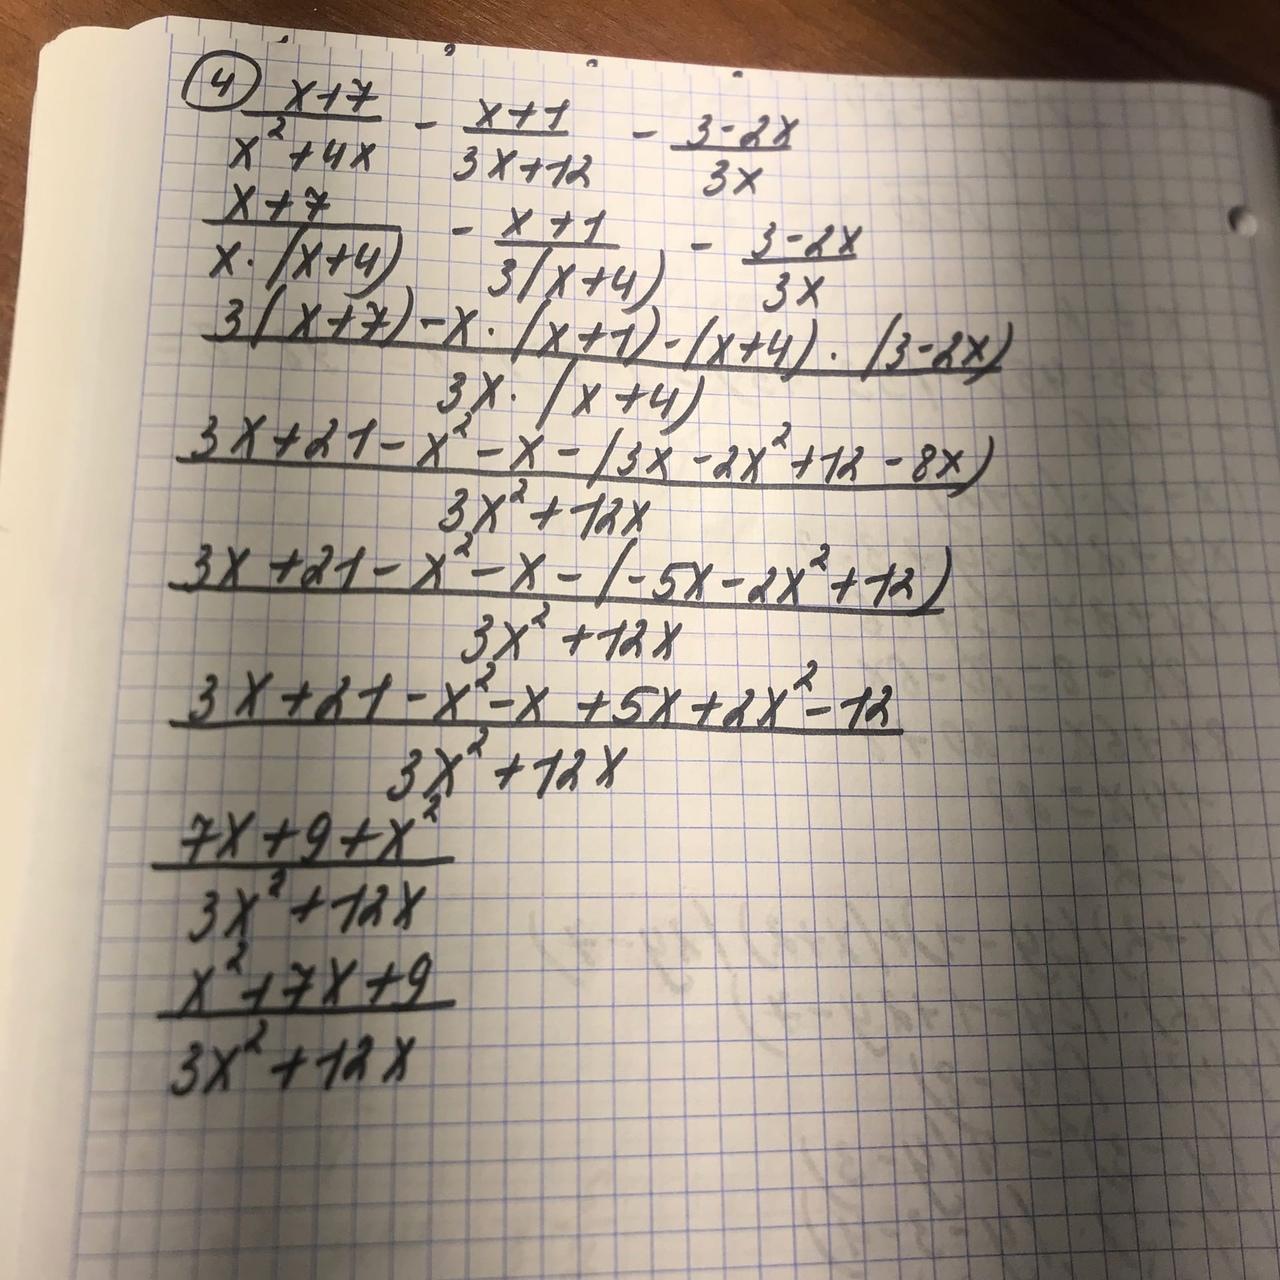 ④ (x+7)/(x²+4x) - (x+1)/(3x+12) - (3-2x)/(3x)
(x+7)/(x·(x+4)) - (x+1)/(3(x+4)) - (3-2x)/(3x)
(3(x+7)-x·(x+1)-(x+4)·(3-2x))/(3x·(x+4))
(3x+21-x²-x-(3x-2x²+12-8x))/(3x²+12x)
(3x+21-x²-x-(-5x-2x²+12))/(3x²+12x)
(3x+21-x²-x+5x+2x²-12)/(3x²+12x)
(7x+9+x²)/(3x²+12x)
(x²+7x+9)/(3x²+12x)